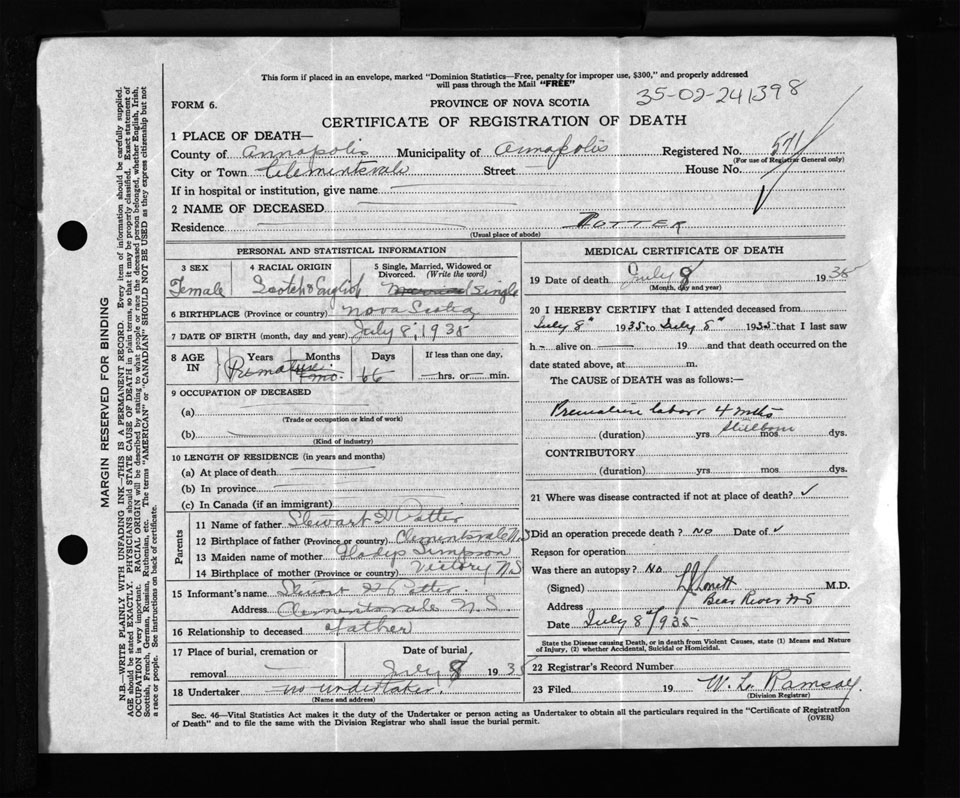 This form if placed in an envelope, marked "Dominion Statistics—Free, penalty for improper use, $300," and properly addressed
will pass through the Mail "FREE"
35-02-241398
FORM 6.
PROVINCE OF NOVA SCOTIA
CERTIFICATE OF REGISTRATION OF DEATH
1 PLACE OF DEATH—
County of Annapolis Municipality of Annapolis Registered No. 571
(For use of Registrar General only)
City or Town Clementsvale Street House No.
If in hospital or institution, give name
2 NAME OF DECEASED
POTTER
Residence
(Usual place of abode)
PERSONAL AND STATISTICAL INFORMATION
3 SEX 4 RACIAL ORIGIN 5 Single, Married, Widowed or Divorced. (Write the word)
Female Scotch & English Single
6 BIRTHPLACE (Province or country) Nova Scotia
7 DATE OF BIRTH (month, day and year) July 8, 1935
8 AGE IN Years Months Days If less than one day,
Premature hrs. or min.
9 OCCUPATION OF DECEASED
(a)
(Trade or occupation or kind of work)
(b)
(Kind of industry)
10 LENGTH OF RESIDENCE (in years and months)
(a) At place of death
(b) In province
(c) In Canada (if an immigrant)
Parents
11 Name of father Stewart H Potter
12 Birthplace of father (Province or country) Clementsvale N.S
13 Maiden name of mother Gladys Simpson
14 Birthplace of mother (Province or country) Victory N.S
15 Informant's name Stewart H Potter
Address Clementsvale N.S.
16 Relationship to deceased father
17 Place of burial, cremation or removal Date of burial
July 8 1935
18 Undertaker no undertaker.
(Name and address)
MEDICAL CERTIFICATE OF DEATH
19 Date of death July 8 1935
(Month, day and year)
20 I HEREBY CERTIFY that I attended deceased from
July 8" 1935 to July 8" 1935 that I last saw
h— alive on 19 and that death occurred on the
date stated above, at m.
The CAUSE of DEATH was as follows:—
Premature labor 4 mths
Stillborn
(duration) yrs. mos. dys.
CONTRIBUTORY
(duration) yrs. mos. dys.
21 Where was disease contracted if not at place of death? ✓
Did an operation precede death? No Date of ✓
Reason for operation
Was there an autopsy? No.
(Signed) M.D.
Address Bear River NS
Date July 8"/935
State the Disease causing Death, or in death from Violent Causes, state (1) Means and Nature
of Injury, (2) whether Accidental, Suicidal or Homicidal.
22 Registrar's Record Number
23 Filed 19 W. L. Ramsay.
(Division Registrar)
Sec. 46—Vital Statistics Act makes it the duty of the Undertaker or person acting as Undertaker to obtain all the particulars required in the "Certificate of Registration
of Death" and to file the same with the Division Registrar who shall issue the burial permit. (OVER)
MARGIN RESERVED FOR BINDING
N.B.—WRITE PLAINLY WITH UNFADING INK—THIS IS A PERMANENT RECORD. Every item of information should be carefully supplied.
AGE should be stated EXACTLY. PHYSICIANS should STATE CAUSE OF DEATH in plain terms, so that it may be properly classified. Exact statement of
OCCUPATION is very important. RACIAL ORIGIN will be described by stating to what people or race the deceased person belonged, whether English, Irish,
Scottish, French, German, Russian, Ruthenian, etc. The terms "AMERICAN" or "CANADIAN" SHOULD NOT BE USED as they express citizenship but not
a race or people. See instructions on back of certificate.